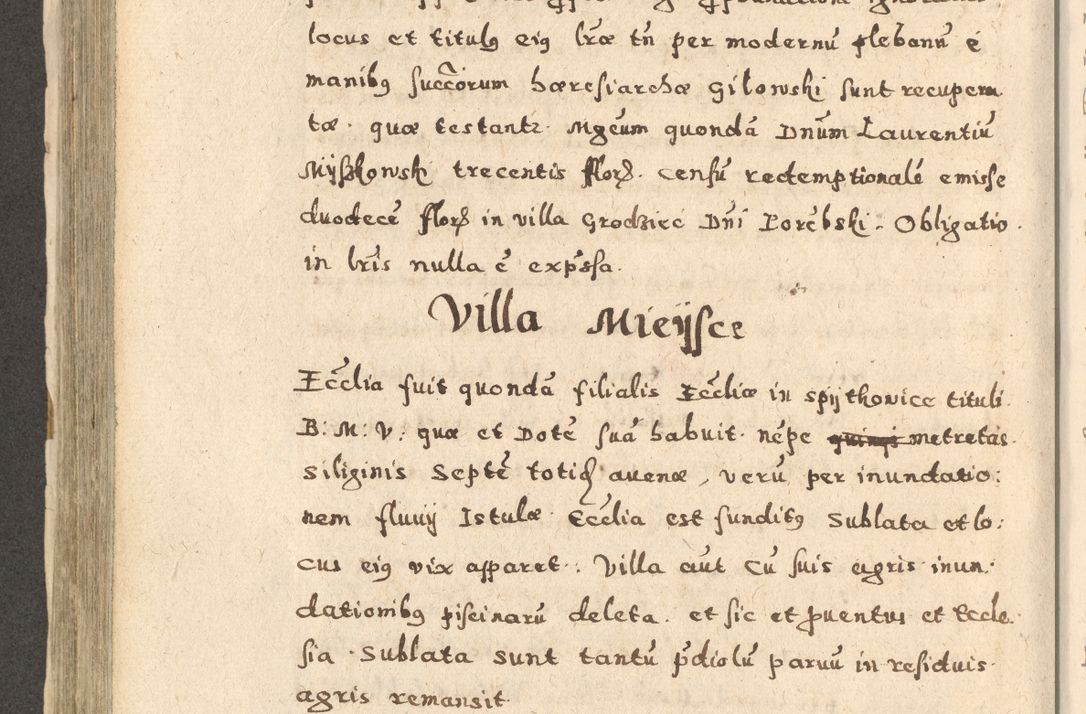 locus et titulꝯ eiꝯ lr̃æ tñ per modernũ plebanũ ẽ
manibꝯ succ̃orum hæresiarchæ Gilowski sunt recupera
tæ. quæ testantr. Mgẽum quondã Dnũm Laurentiũ
Myszkowski trecentis flor. censũ redemptionalẽ emisse
duodecẽ flor in villa Grodziec Dñi Porẽbski. Obligatio.
in lr̃is nulla ẽ exp̃ssa.
Villa Mieÿsce
Ecc̃lia fuit quondã filialis Ecc̃liæ in Spÿtkovice tituli
B: M: V: quæ et Dotẽ suã habuit. nẽpe metretas.
siliginis Septẽ totiđ avenæ, verũ per inundatio:
nem fluvÿ Istulæ Ecc̃lia est funditꝯ Sublata et lo:
cus eiꝯ vix apparet.: Villa aũt Cũ suis agris inun:
dationibꝯ piscinarũ deleta. et sic et ꝓventus et Eccle.
sia. Sublata sunt tantũ p̃diolũ parvũ in residuis.
agris remansit.